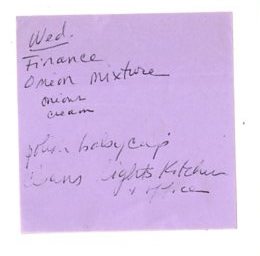 Wed.
Finance
Onion mixture
onions
cream
polish baby cup
lights Kitchen
+ office